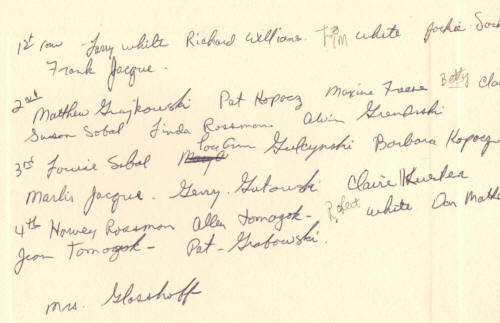 1st row - Jerry White Richard Williams. Tim White Jackie
Frank Jacque.
2nd Matthew Grajkowski Pat Kopacz Maxine Freese Betty
Susan Sobal Linda Rossman Alvin
3rd Louise Sobal LouAnn Gulcynski Barbara Kopacz
Marlis Jacque. Gerry. Gutowski Claire Kuster
4th Harvey Rossman Allen Tomazok - Robert White Don
Jean Tomazok - Pat - Grabowski.
Mrs. Glosshoff